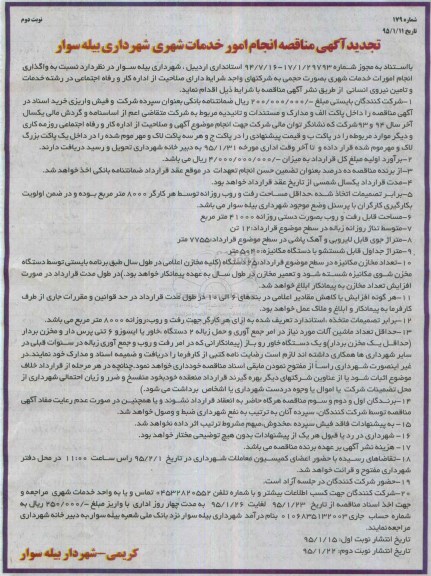 شماره ۱۷۹
تاریخ ۹۵/۱/۱۱
نوبت دوم
تجدید آگهی مناقصه انجام امور خدمات شهری شهرداری بیله سوار
بااستناد به مجوز شماره ۹۴/۷/۱۶-۱۷/۱/۲۹۷۹۳ استانداری اردبیل ، شهرداری بیله سوار در نظر دارد نسبت به واگذاری
انجام امورات خدمات شهری بصورت حجمی به شرکتهای واجد شرایط دارای صلاحیت از اداره کار و رفاه اجتماعی در رشته خدمات
و تامین نیروی انسانی از طریق نشر آگهی مناقصه با شرایط ذیل اقدام نماید.
۱-شرکت کنندگان بایستی مبلغ ۲۰۰/۰۰۰/۰۰۰/- ریال ضمانتنامه بانکی بعنوان سپرده شرکت و فیش واریزی خرید اسناد در
آگهی مناقصه را داخل پاکت الف و مدارک و مستندات و تائیدیه مربوط به شرکت متقاضی اعم از اساسنامه و گردش مالی یکسال
آخر سال ۹۴ و ۹۳ شرکت که نشانگر توان مالی شرکت جهت انجام موضوع آگهی و صلاحیت از اداره کار و رفاه اجتماعی روزمه کاری
و دیگر موارد مربوطه را در پاکت ب و قیمت پیشنهادی را در پاکت ج و هر سه پاکت لاک و مهر موم شده را در داخل یک پاکت بزرگ
لاک و مهرموم شده قرار داده و تا آخر وقت اداری مورخه ۹۵/۱/۳۱ به دبیر خانه شهرداری تحویل و رسید دریافت دارند.
۲-برآورد اولیه مبلغ کل قرارداد به میزان ۴/۰۰۰/۰۰۰/۰۰۰/- ریال می باشد.
۳-از برنده مناقصه ده درصد بعنوان تضمین حسن انجام تعهدات در موقع عقد قرارداد ضمانتنامه بانکی اخذ خواهد شد.
۴-مدت قرارداد یکسال شمسی از تاریخ عقد قرارداد خواهد بود.
۵-برابر تصمیمات اتخاذ شده حداقل مساحت رفت و روب روزانه توسط هر کارگر ۸۰۰۰ متر مربع بوده و در ضمن اولویت
بکارگیری کارگران با پرسنل وضع موجود شهرداری بیله سوار می باشد.
۶-مساحت قابل رفت و روب بصورت دستی روزانه ۴۱۰۰۰ متر مربع
۷-متوسط تناژ روزانه زباله در سطح موضوع قرارداد:۱۲ تن
۸-متراژ جوی قابل لایروبی و آهک پاشی در سطح موضوع قرارداد:۷۷۵۵ متر
۹-متراژ جداول قابل شستشو با دستگاه مکانیزه:۵۰۴۰ متر
۱۰-تعداد مخازن مکانیزه در سطح موضوع قرارداد:۲۵ دستگاه (کلیه مخازن اعلامی در طول سال طبق برنامه بایستی توسط دستگاه
مخزن شوی مکانیزه شسته شود و تعمیر مخازن در طول سال به عهده پیمانکار خواهد بود.)در طول مدت قرارداد در صورت
افزایش تعداد مخازن به پیمانکار ابلاغ خواهد شد.
۱۱-هر گونه افزایش یا کاهش مقادیر اعلامی در بندهای ۶ الی ۱۰ در طول مدت قرارداد در حد قوانین و مقررات جاری از طرف
کارفرما به پیمانکار و ابلاغ و ملاک عمل خواهد بود.
۱۲-برابر تصمیمات متخذه ،استاندارد تعریف شده به ازای هر کارگر جهت رفت و روب،روزانه ۸۰۰۰ متر مربع می باشد.
۱۳-حداقل تعداد ماشین آلات مورد نیاز در امر جمع آوری و حمل زباله ۲ دستگاه ،خاور یا ایسوز و ۶ تنی پرس دار و مخزن بردار
(حداقل یک مخزن بردار)و یک دستگاه خاور رو باز (پیمانکارانی که در امر رفت و روب و جمع آوری زباله در سنوات قبلی در
سایر شهرداری ها همکاری داشته اند لازم است رضایت نامه کتبی از کارفرما را دریافت و ضمیمه اسناد و مدارک خود نمایند.در
غیر اینصورت شهرداری راساً از مفتوح نمودن مابقی اسناد مناقصه خودداری خواهد نمود.چنانچه در هر مرحله از قرارداد خلاف
موضوع اثبات شود یا از عناوین شرکتهای دیگر بهره گیرند قرارداد منعقده خودبخود منفسخ و ضرر و زیان احتمالی شهرداری از
محل تضمینات شرکت یا اموال یا وجوه دردست شهرداری یا اشخاص برداشت می شود.)
۱۴-برندگان اول و دوم و سوم مناقصه هرگاه حاضر به انعقاد قرارداد نشوند و یا همچنین در صورت عدم رعایت مفاد آگهی
مناقصه توسط شرکت کنندگان، سپرده آنان به ترتیب به نفع شهرداری ضبط و وصول خواهد شد.
۱۵- به پیشنهادات فاقد فیش سپرده ،مخدوش،مبهم مشروط ترتیب اثر داده نخواهد شد.
۱۶- شهرداری در رد یا قبول هر یک از پیشنهادات بدون هیچ توضیحی مختار خواهد بود.
۱۷- هزینه نشر آگهی بر عهده برنده مناقصه می باشد.
۱۸-تقاضاهای رسیده با حضور اعضای کمیسیون معاملات شهرداری در تاریخ ۹۵/۲/۱ راس ساعت ۱۱:۰۰ در محل دفتر
شهرداری مفتوح و قرائت خواهد شد.
۱۹-حضور شرکت کنندگان در جلسه آزاد است.
۲۰-شرکت کنندگان جهت کسب اطلاعات بیشتر و با شماره تلفن ۰۴۵۳۲۸۲۰۵۵۲ تماس و یا به واحد خدمات شهری مراجعه و
جهت اخذ اسناد مناقصه از تاریخ ۹۵/۱/۲۳ لغایت ۹۵/۱/۲۶ به مدت چهار روز اداری با واریز مبلغ ۲۵۰/۰۰۰/- ریال به
شماره حساب جاری ۰۱۰۶۸۳۵۱۳۲۰۰۳ بنام درآمد شهرداری بیله سوار نزد بانک ملی شعبه بیله سوار،به دبیر خانه شهرداری
مراجعه نمایند.
تاریخ انتشار نوبت اول: ۹۵/۱/۱۵
تاریخ انتشار نوبت دوم: ۹۵/۱/۲۲
کریمی-شهردار بیله سوار